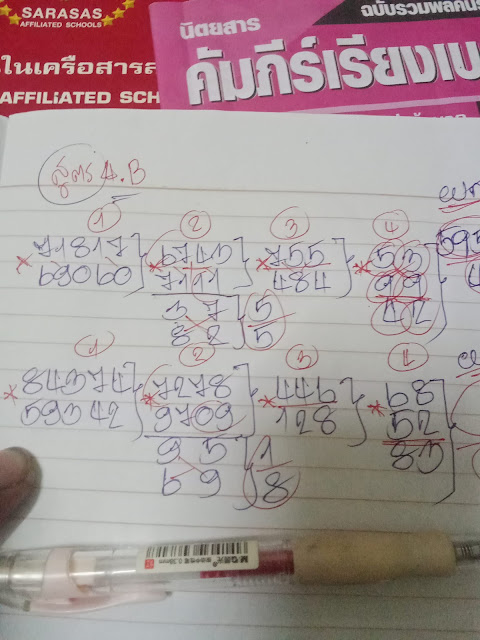 SARASAS
AFFILIATED SCHOOLS
ในเครือสารส
AFFILIATED SCH
ฉบับรวมพลคน
นิตยสาร
คัมภีร์เรียงเบ
สูตร A.B
1 2 3 4
* 71817 * 6743 * 755 * 53 595
69060 7191 484 99 4
3 7 5 42
8 2 5
1 2 3 4
* 84374 * 7278 * 446 * 68
59342 9709 128 52
9 5 1 83
6 9 8
M&G